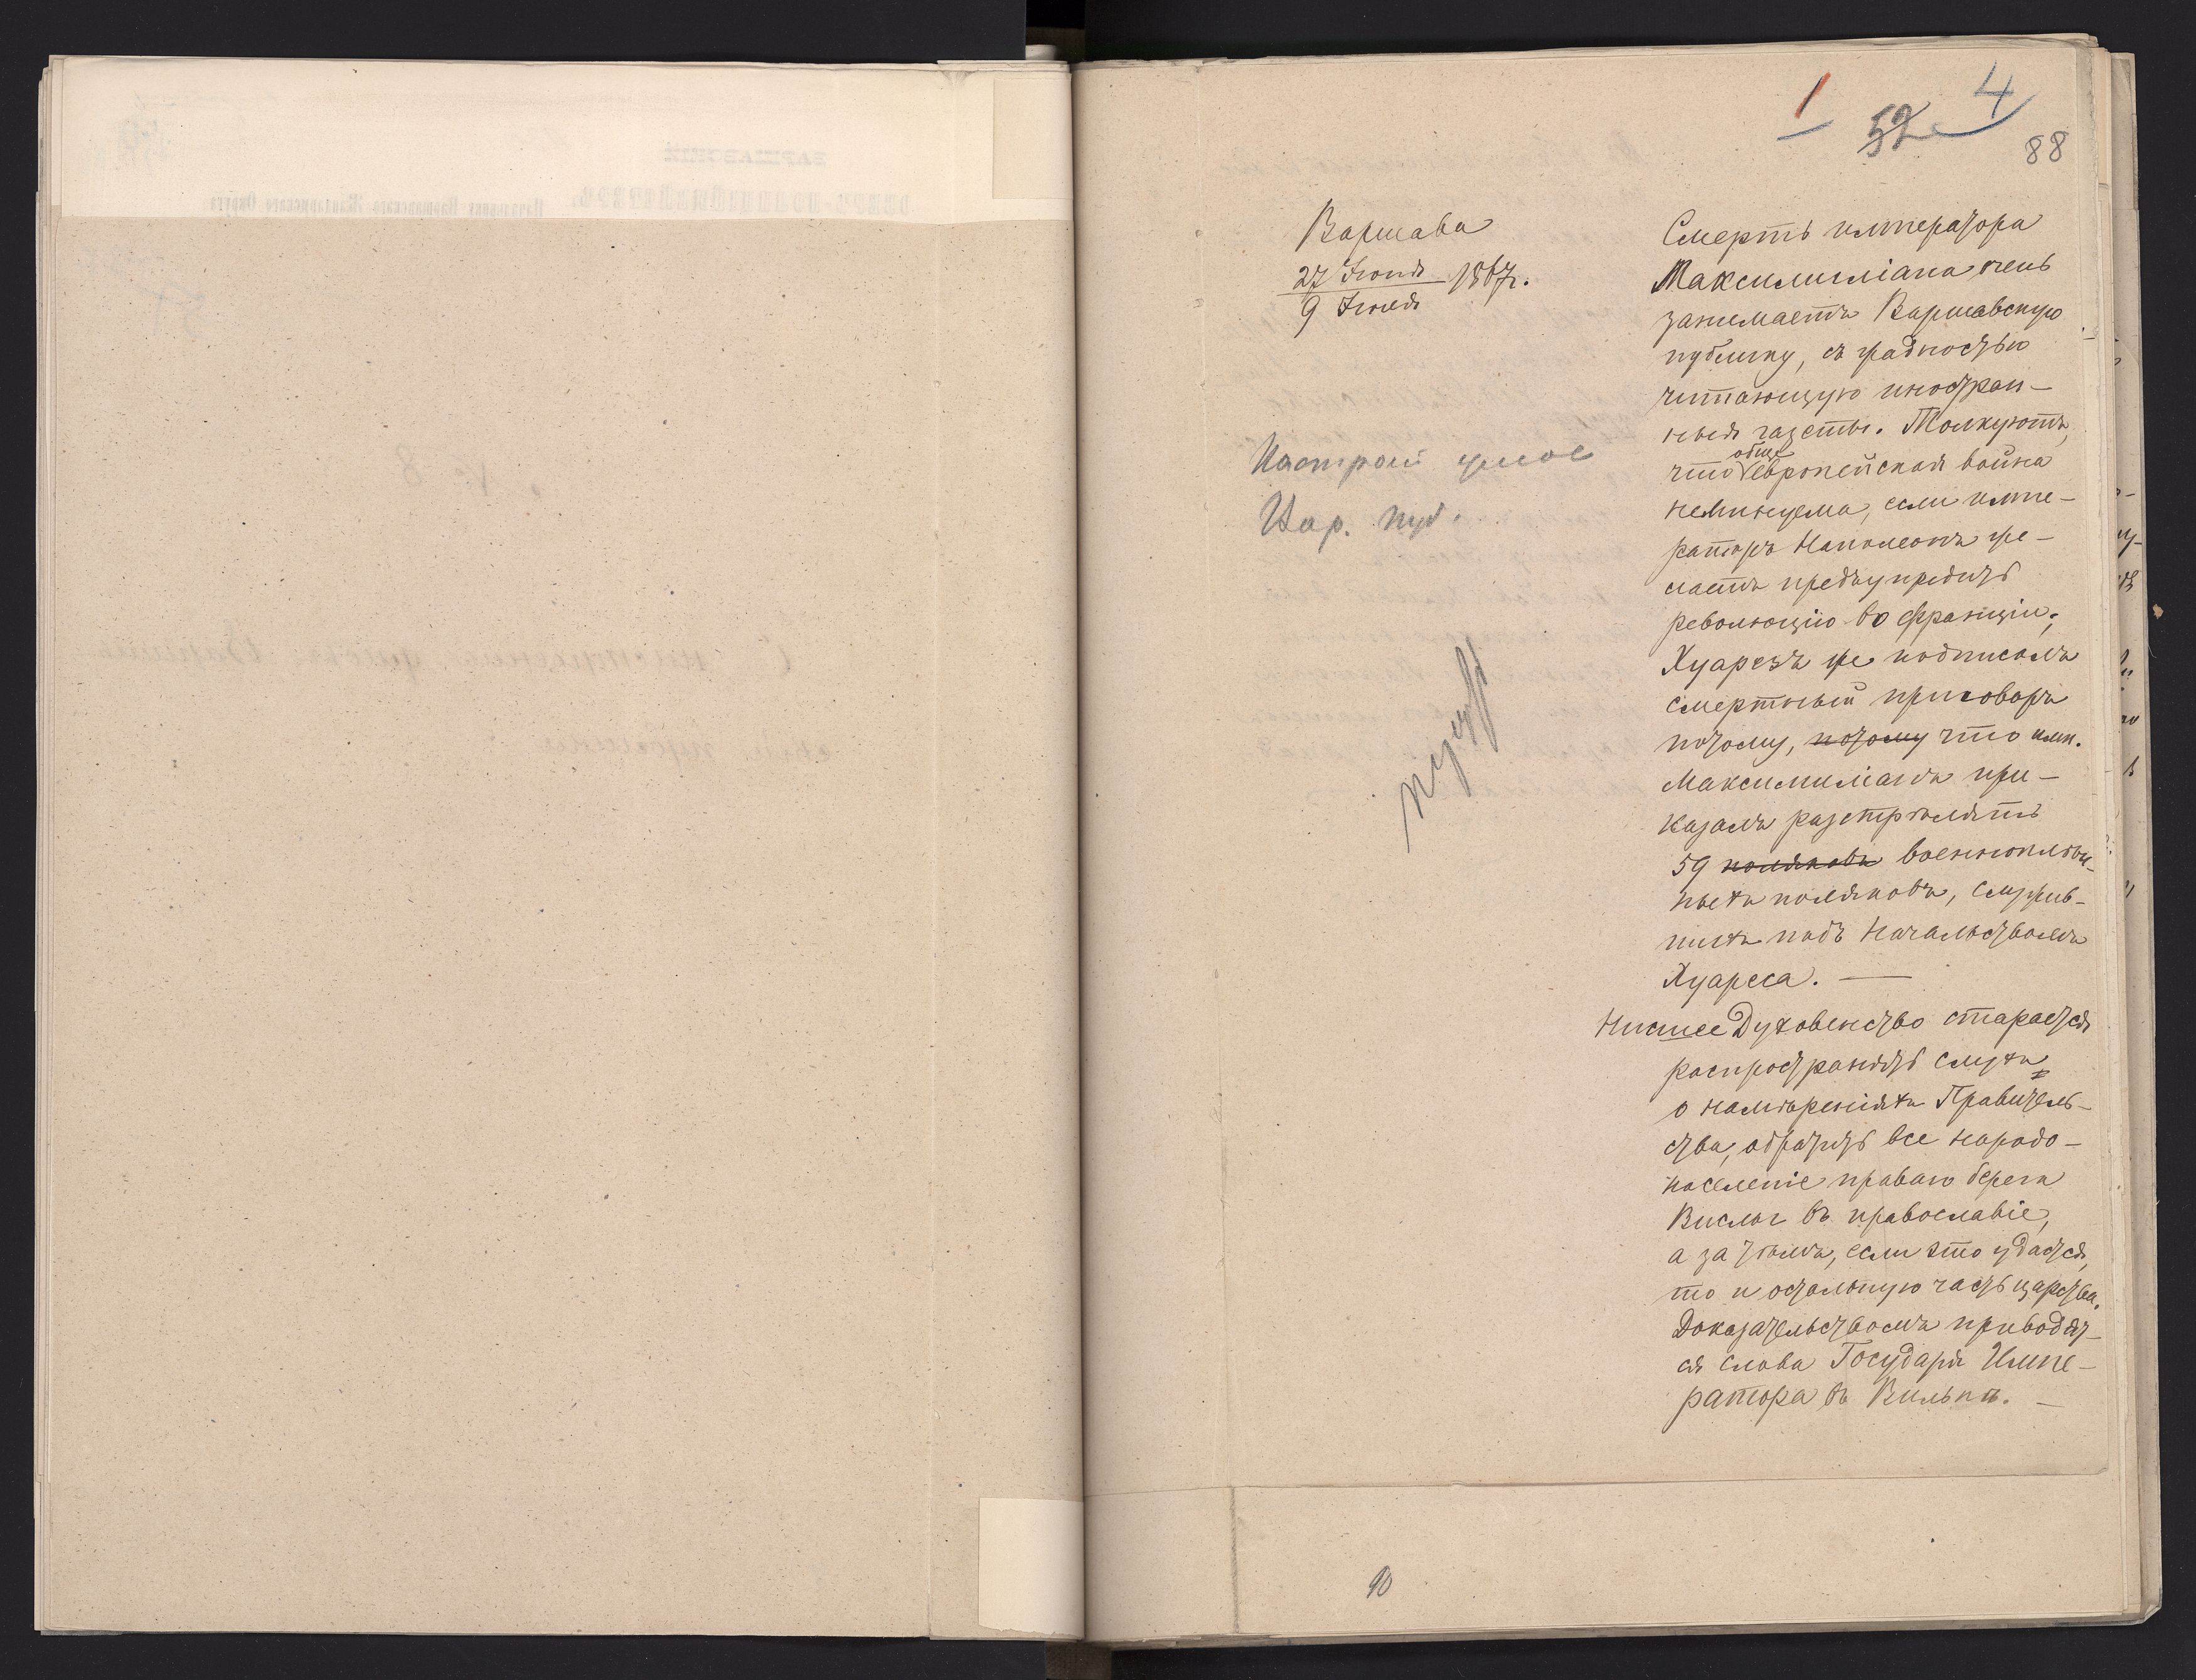 1 4
52
88
Варшава
27 Іюня 1867г.
9 Іюля
Настроен умов
Нар. пуб.
Смерть императора
Максимиліана очень
занимаетъ Варшавскую
публику, съ жадностью
читающую иностран-
ныя газеты. Толкуютъ,
обще
что европейская война
неминуема, если импе-
раторъ Наполеонъ же-
лаетъ предъупредить
революцію во Франціи;
Хуарезъ же подписалъ
смертный приговоръ
потому, потому что имп.
Максимиліанъ при-
казалъ разстрѣлять
59 поляковъ военноплѣн-
ныхъ поляковъ, служив-
шихъ подъ начальствомъ
Хуареса. —
Низшее Духовенство старается
распространять слухъ
о намѣреніяхъ Правитель-
ства, обратить все народо-
населеніе праваго берега
Вислы въ православіе,
а за тѣмъ, если это удастся,
то и остальную часть царства.
Доказательствомъ приводят-
ся слова Государя Импе-
ратора въ Вильнѣ. —
10